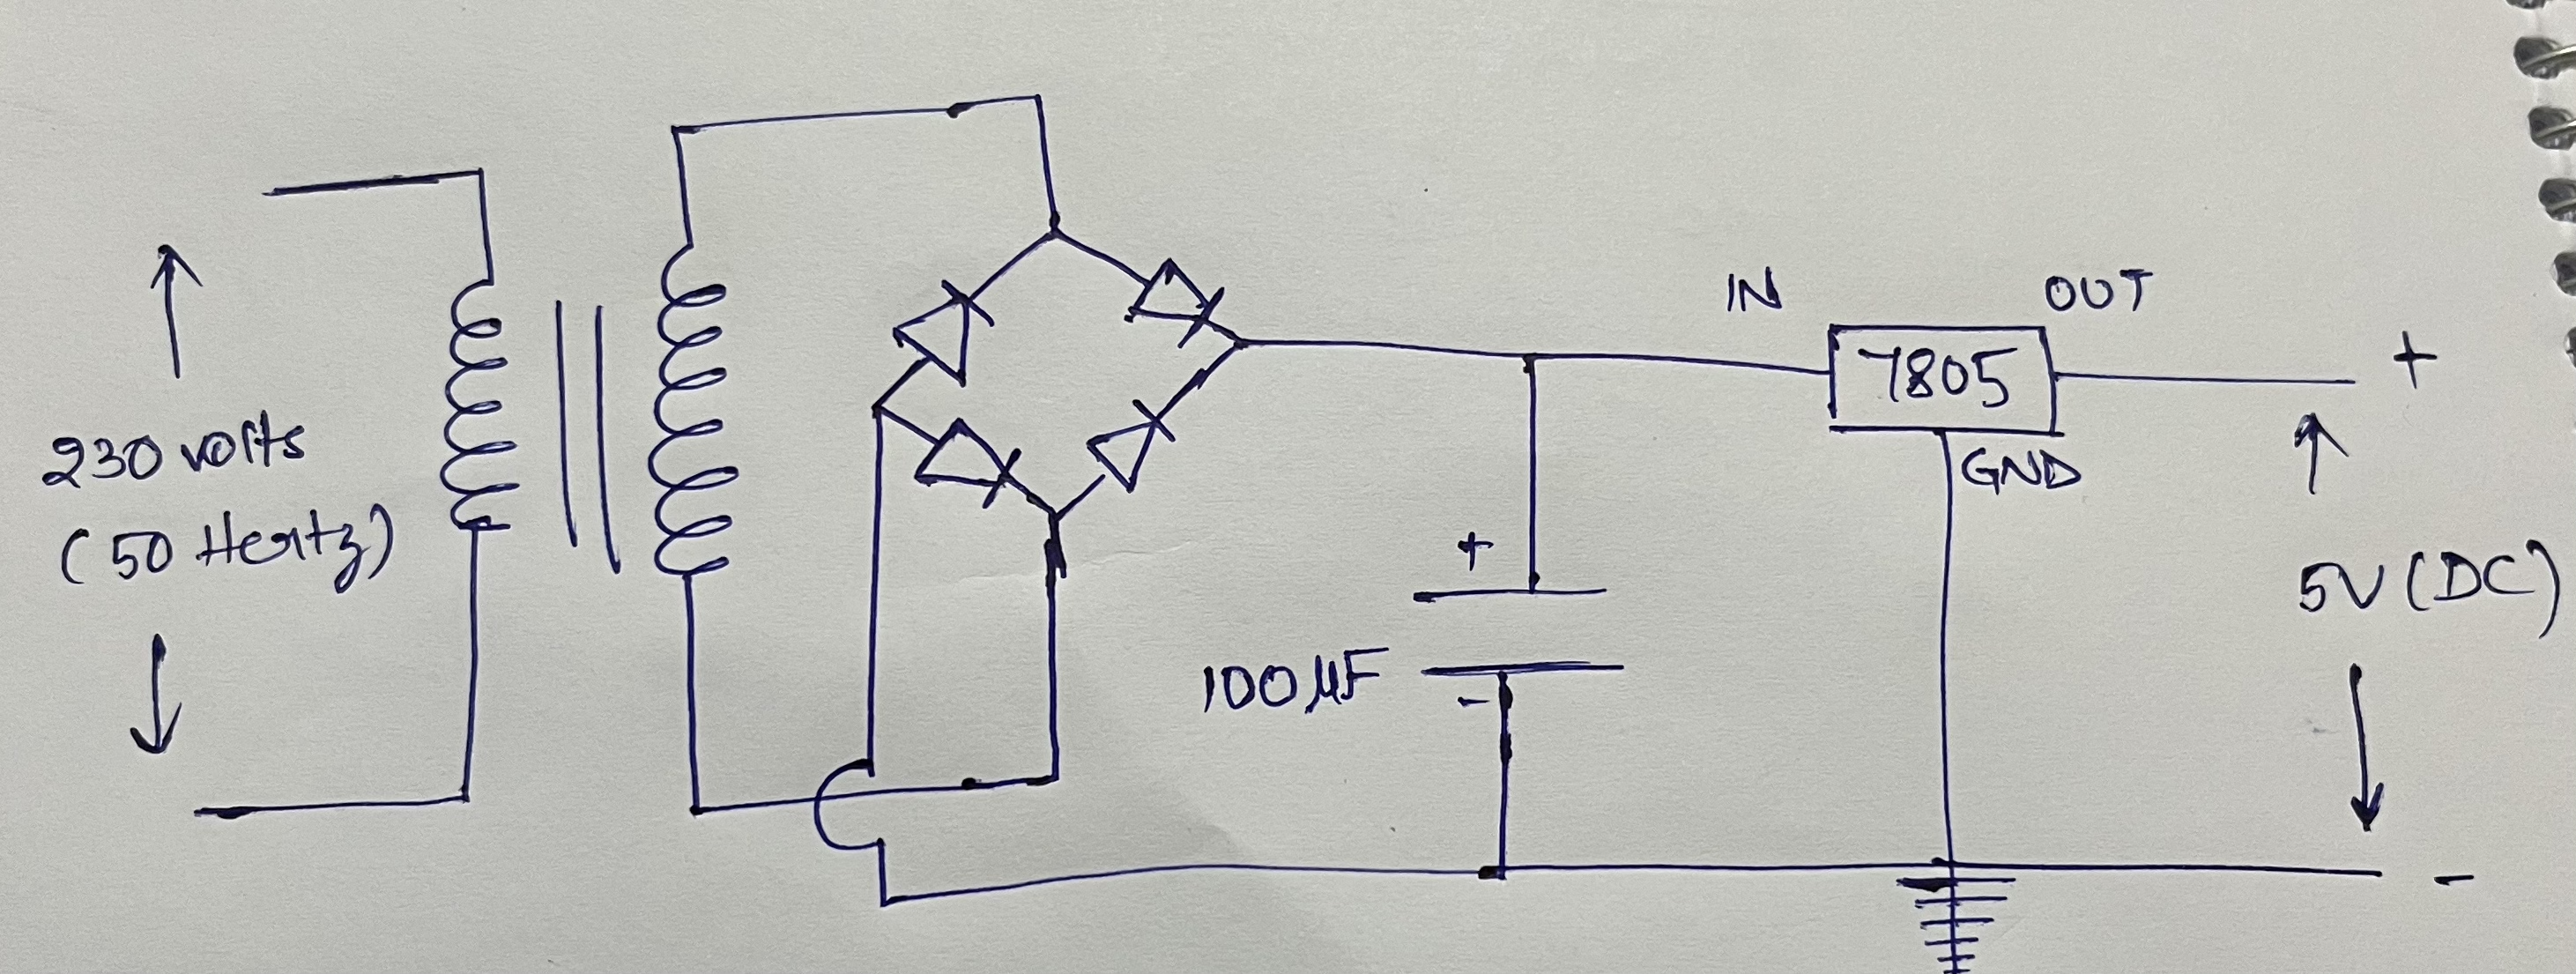 230 volts
(50 Hertz)
+
100 µF
-
IN
OUT
7805
GND
+
5V (DC)
-